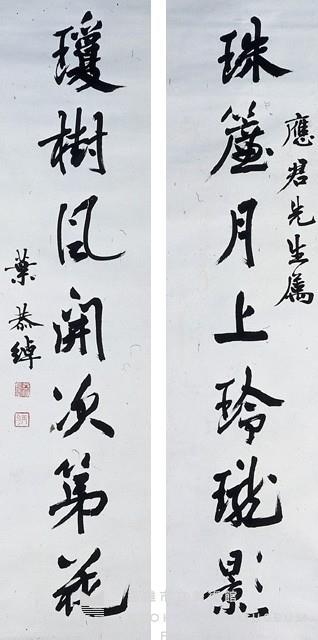 應君先生屬
珠簾月上玲瓏影
瓊樹風開次第花
葉恭綽